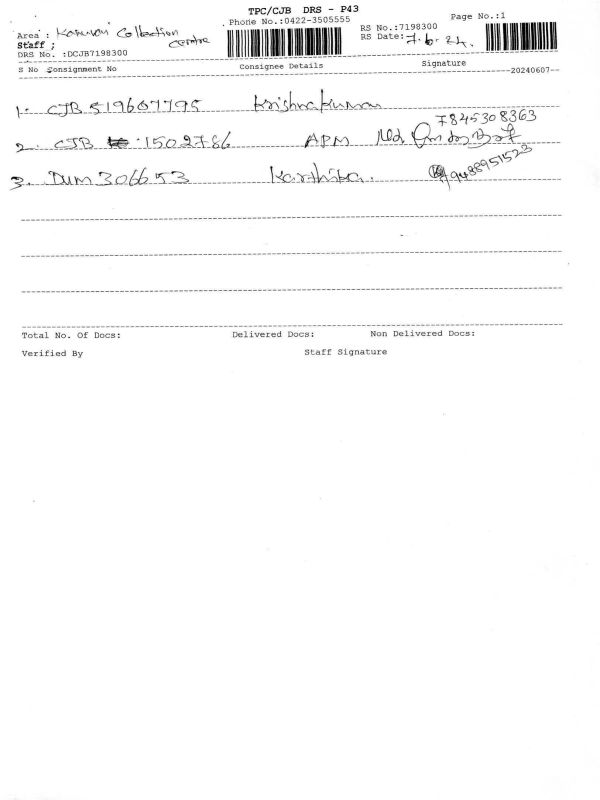 TPC/CJB DRS - P43
Phone No.:0422-3505555
Page No.:1
Area : Collection Centre
RS No.:7198300
Staff ;
RS Date: 7.6.24.
DRS No. :DCJB7198300
S No Consignment No Consignee Details Signature
--20240607--
1. CJB 519607795 Krishnakumar
7845308363
2. CJB 1502786 APM
3. Dum 306653 Karthika. 9488951523
Total No. Of Docs: Delivered Docs: Non Delivered Docs:
Verified By Staff Signature